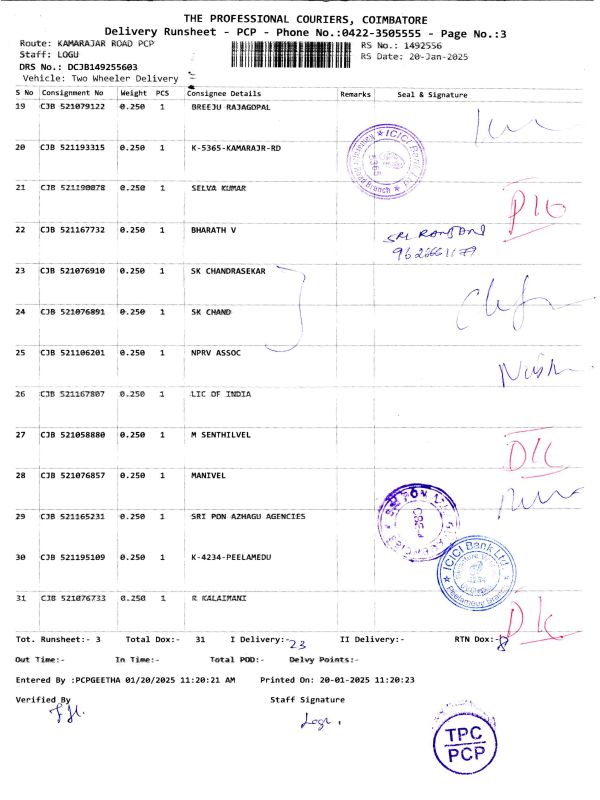 THE PROFESSIONAL COURIERS, COIMBATORE
Delivery Runsheet - PCP - Phone No.:0422-3505555 - Page No.:3
Route: KAMARAJAR ROAD PCP RS No.: 1492556
Staff: LOGU RS Date: 20-Jan-2025
DRS No.: DCJB149255603
Vehicle: Two Wheeler Delivery
S No Consignment No Weight PCS Consignee Details Remarks Seal & Signature
19 CJB 521079122 0.250 1 BREEJU RAJAGOPAL
20 CJB 521193315 0.250 1 K-5365-KAMARAJR-RD
ICICI Bank
5365
Road Branch
21 CJB 521190078 0.250 1 SELVA KUMAR
22 CJB 521167732 0.250 1 BHARATH V
23 CJB 521076910 0.250 1 SK CHANDRASEKAR
24 CJB 521076891 0.250 1 SK CHAND
25 CJB 521106201 0.250 1 NPRV ASSOC
26 CJB 521167807 0.250 1 LIC OF INDIA
27 CJB 521058880 0.250 1 M SENTHILVEL
D/C
28 CJB 521076857 0.250 1 MANIVEL
29 CJB 521165231 0.250 1 SRI PON AZHAGU AGENCIES
30 CJB 521195109 0.250 1 K-4234-PEELAMEDU
ICICI Bank Ltd.
4234
Peelamedu Branch
31 CJB 521076733 0.250 1 R KALAIMANI
D/C
Tot. Runsheet:- 3 Total Dox:- 31 I Delivery:- 23 II Delivery:- RTN Dox:- 8
Out Time:- In Time:- Total POD:- Delvy Points:-
Entered By :PCPGEETHA 01/20/2025 11:20:21 AM Printed On: 20-01-2025 11:20:23
Verified By Staff Signature
Logu.
TPC
PCP